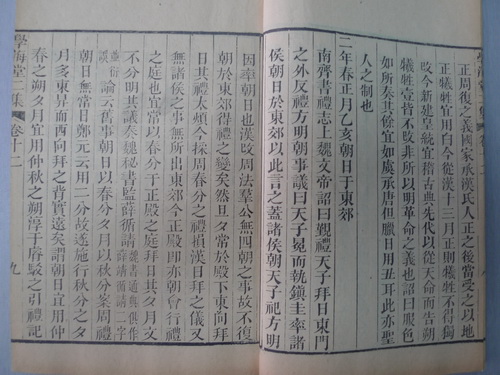 正周復之義國家承漢氏人正之後當受之以地
犧牲宜用白今從漢十三月正則犧牲不得獨
改今新建皇統宜稽古典先代以從天命而告朔
犧牲壹皆不改非所以明革命之義也詔曰服色
如所奏其餘宜如虞承唐但臘日用丑耳此亦聖
人之制也
二年春正月乙亥朝日于東郊
南齊書禮志上魏文帝詔曰覲禮天子拜日東門
之外反禮方明朝事議曰天子冕而執鎮圭率諸
侯朝日於東郊以此言之蓋諸侯朝天子祀方明
因率朝日也漢改周法羣公無四朝之事故不復
朝於東郊得禮之變矣然旦夕常於殿下東向拜
日其禮太頻今採周春分之禮損漢日拜之儀又
無諸侯之事無所出東郊今正殿即亦朝會行禮
之庭也宜常以春分于正殿之庭拜日其夕月文
不分明其議奏魏秘書監薛循請
論云舊事朝日以春分夕月以秋分案周禮
朝日無常日鄭元云用二分故遂施行秋分之夕
月多東昇而西向拜之背實遠矣謂朝日宜用仲
春之朔夕月宜用仲秋之朔淳于睿駮之引禮記
學海堂二集 卷十二 九